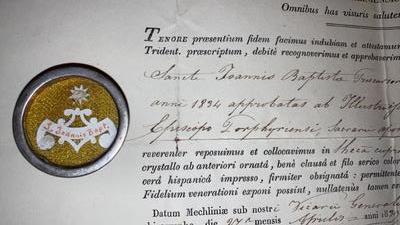 Omnibus has visuris salute
TENORE præsentium fidem facimus indubiam et attestamur
Trident. præscriptum, debitè recognoverimus et approbaverim
Sancti Joannis Baptista Præcursor
anni 1824 approbatas ab Illustris
Episcopo Porphyriensi, Sacrani apos
reverenter reposuimus et collocavimus in theca cupr
crystallo ab anteriori ornatâ, benè clausâ et filo serico color
cerâ hispanicâ impresso, firmiter obsignatâ : permittente
Fidelium venerationi exponi possint, nullatenùs tamen
Datum Mechliniæ sub nostri Vicarii Generalis
die 27a mensis Aprilis anni 182
S. Joannis Bapt.